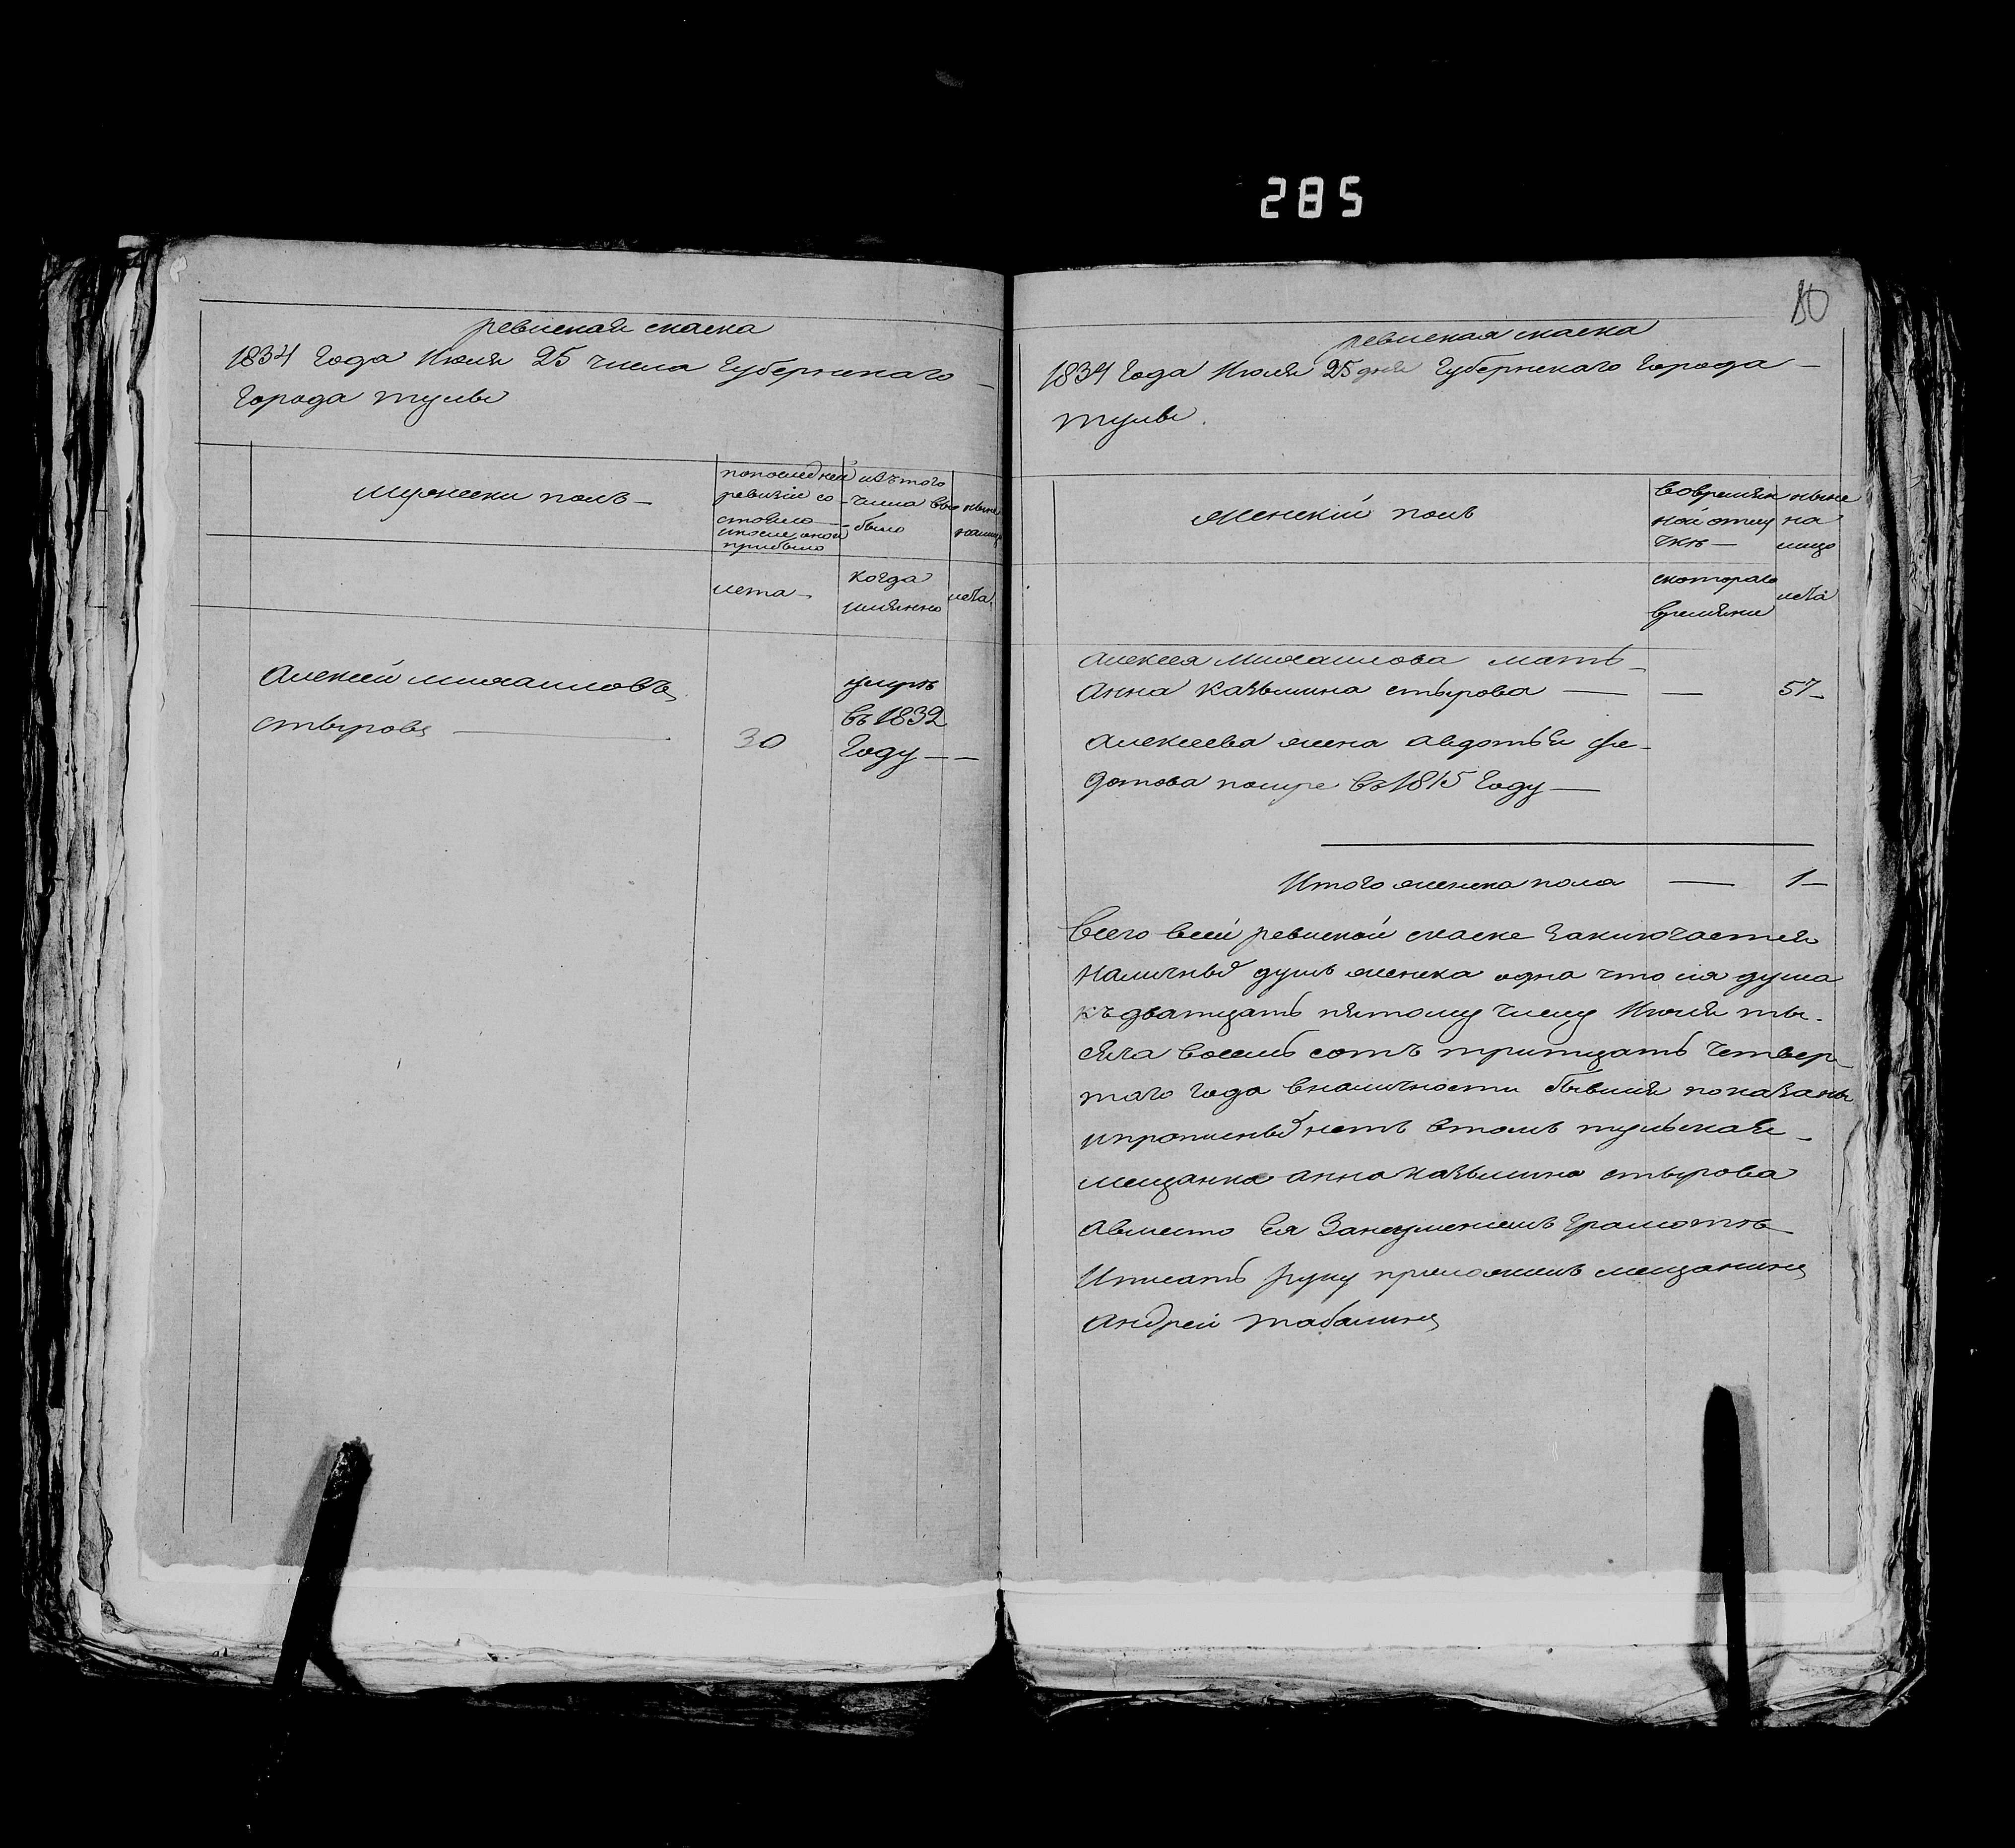 285
ревиская скаска
1834 Года Июля 25 числа Губернскаго
Города тулы
мужески полъ
попоследней
ревизіи со-
стояло
ипосле оной
прибыло
изътого
числа вы-
было
ныне
налицо
лета
когда
имянно
лета
Алексей михаиловъ
стыровъ
30
умеръ
въ 1832
Году
10
ревиская скаска
1834 Года Июля 25 дня Губернскаго Города
тулы.
женскій полъ
вовремян
ной отлу
чкѣ
ныне
на
лицо
скотораго
времяни
лета
Алексея михаилова мать
Анна казьмина стырова 57
Алексеева жена авдотья фе-
дотова померла въ 1815 Году
Итого женска пола 1
Всего всей ревиской скаске Заключается
Наличныхъ душъ женска одна что сія душа
къ дватцать пятому числу Июля ты-
сяча восемь сотъ тритцать четвер-
таго года вналичности бывшия показаны
ипрописныхъ нетъ втомъ тульская
мещанка анна казьмина стырова
авместо Ея Занеумениемъ Грамотѣ
Иписать руку приложилъ мещанинъ
Андрей табалинъ